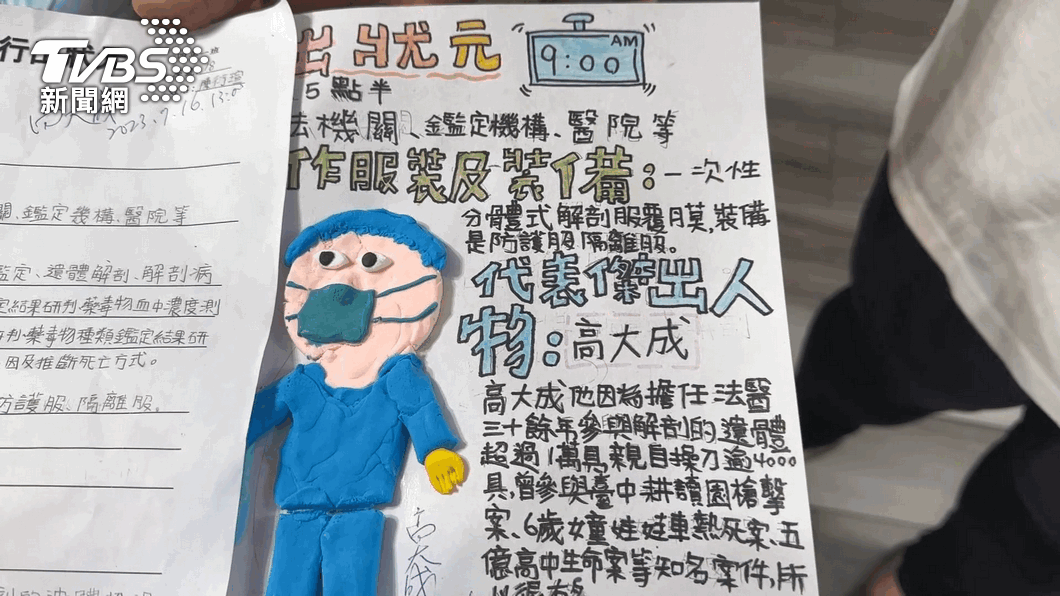 TVBS
新聞網
2023.7.16.
關、鑑定機構、醫院等
監定、遺體解剖、解剖病
定結果研判、藥毒物血中濃度測
判、藥毒物種類鑑定結果研
因及推斷死亡方式。
防護服、隔離服。
出狀元
AM
9:00
5點半
法機關、鑑定機構、醫院等
作服裝及裝備:一次性
分體式解剖服覆膜,裝備
是防護服隔離服。
代表傑出人
物:高大成
高大成他因為擔任法醫
三十餘年參與解剖的遺體
超過1萬具,親自操刀逾4000
具,曾參與臺中耕讀園槍擊
案、6歲女童娃娃車熱死案、五
億高中生命案等知名案件,所
高大成